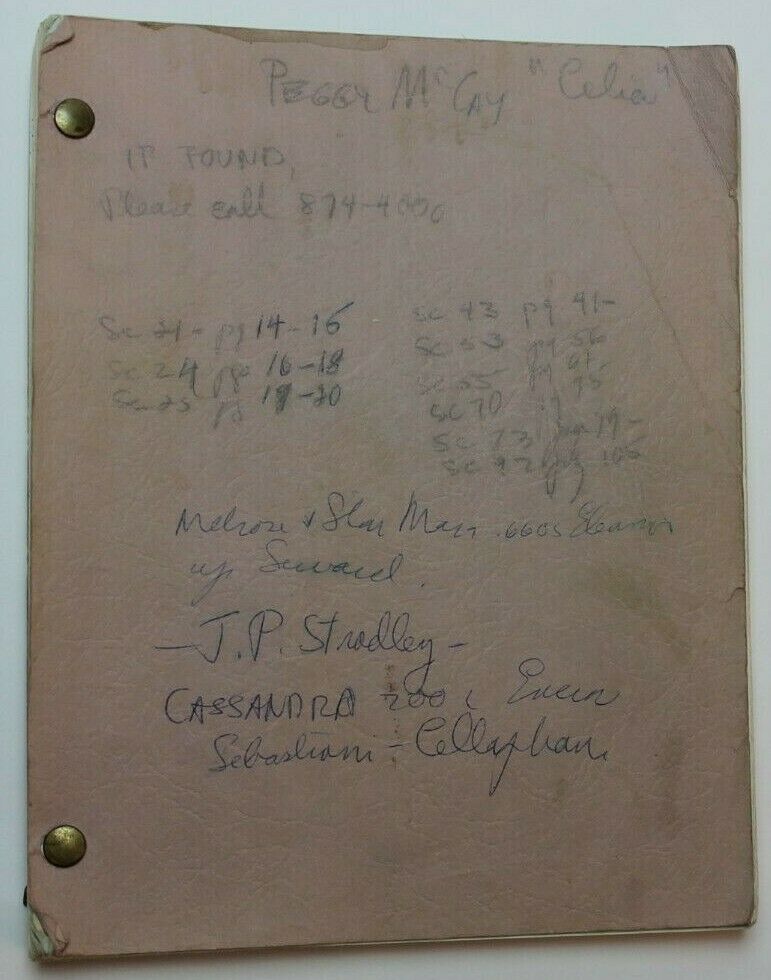 PEGGY McCAY "Celia"
IF FOUND,
Please call 874-4000
Sc 21- pg 14-16
Sc 24 pgs 16-18
Sc 25 pg 19-20
Sc 43 pg 41-
Sc 53 pg 56
Sc 55 pg 61-
Sc 70
Sc 73 79-
Sc 92 pg 105
Melrose & Star 6605 Eleanor
up Seward.
- J.P. Stradley -
CASSANDRA 200
Sebastiani -